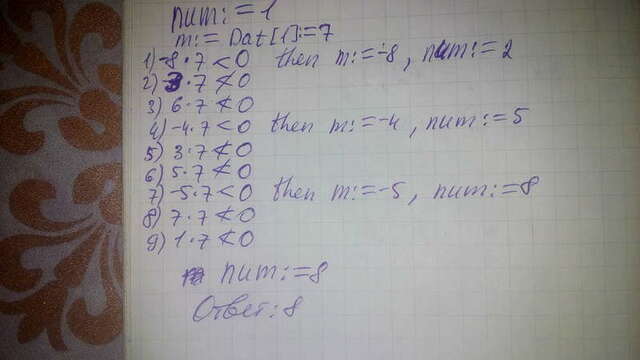 num:=1
m:= Dat[1]:=7
1) -8·7<0 then m:=-8, num:=2
2) 3·7≮0
3) 6·7≮0
4) -4·7<0 then m:=-4, num:=5
5) 3·7≮0
6) 5·7≮0
7) -5·7<0 then m:=-5, num:=8
8) 7·7≮0
9) 1·7≮0
num:=8
Ответ: 8